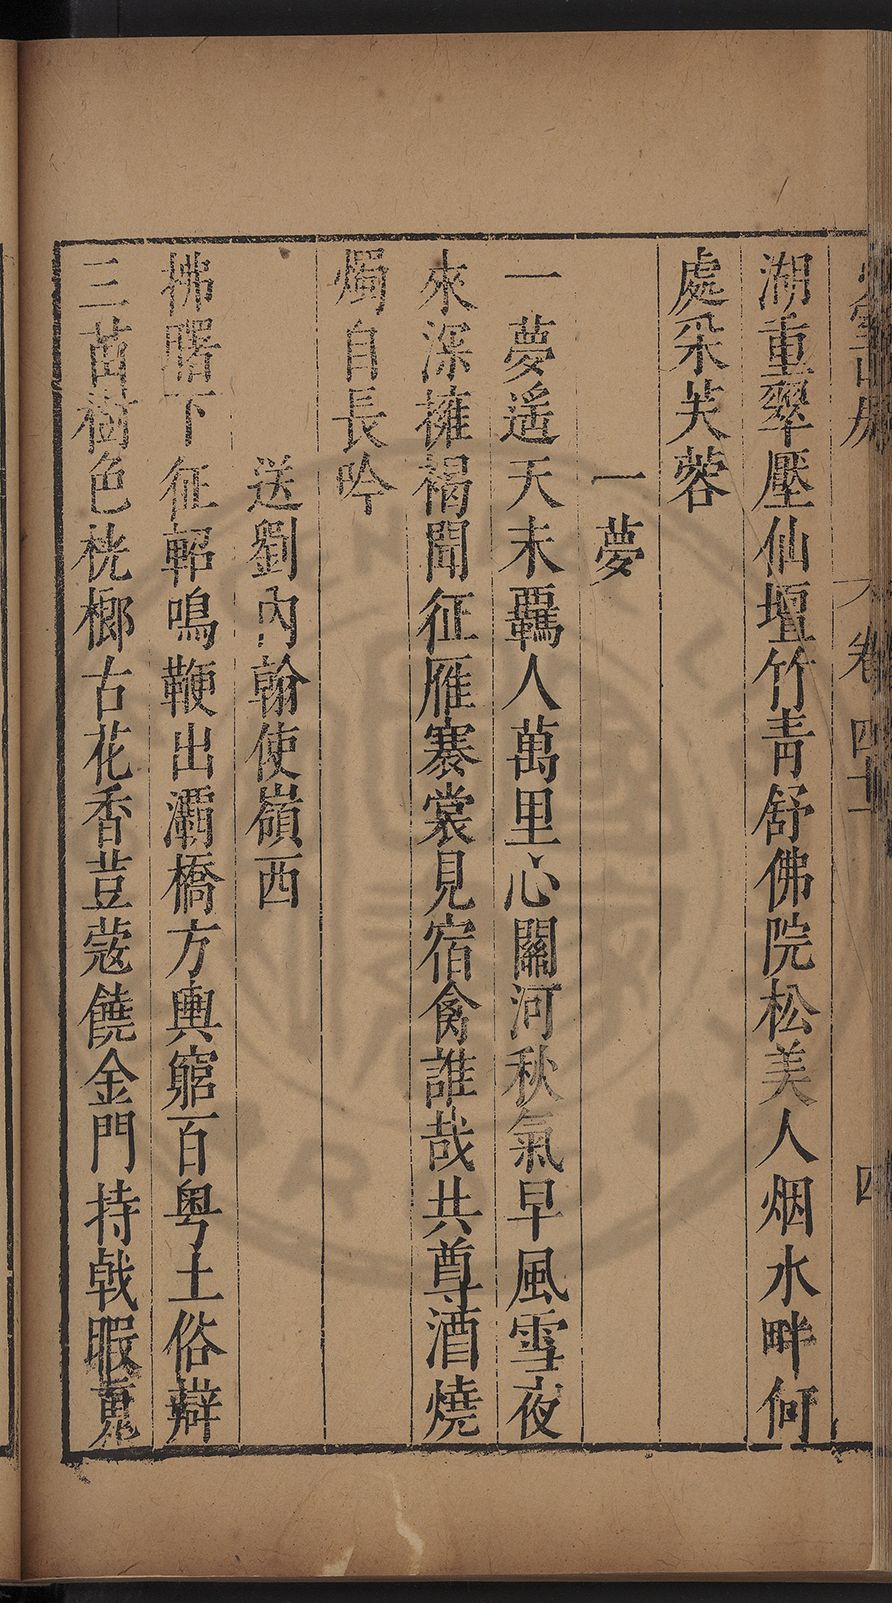 卷四十
四
湖重翠壓仙壇竹青舒佛院松美人烟水畔何
處采芙蓉
一夢
一夢遥天末覊人萬里心關河秋氣早風雪夜
來深擁褐聞征雁褰裳見宿禽誰哉共尊酒燒
燭自長吟
送劉內翰使嶺西
拂曙下征軺鳴鞭出灞橋方輿窮百粤土俗辯
三苗樹色桄榔古花香荳蔻饒金門持戟暇蒐